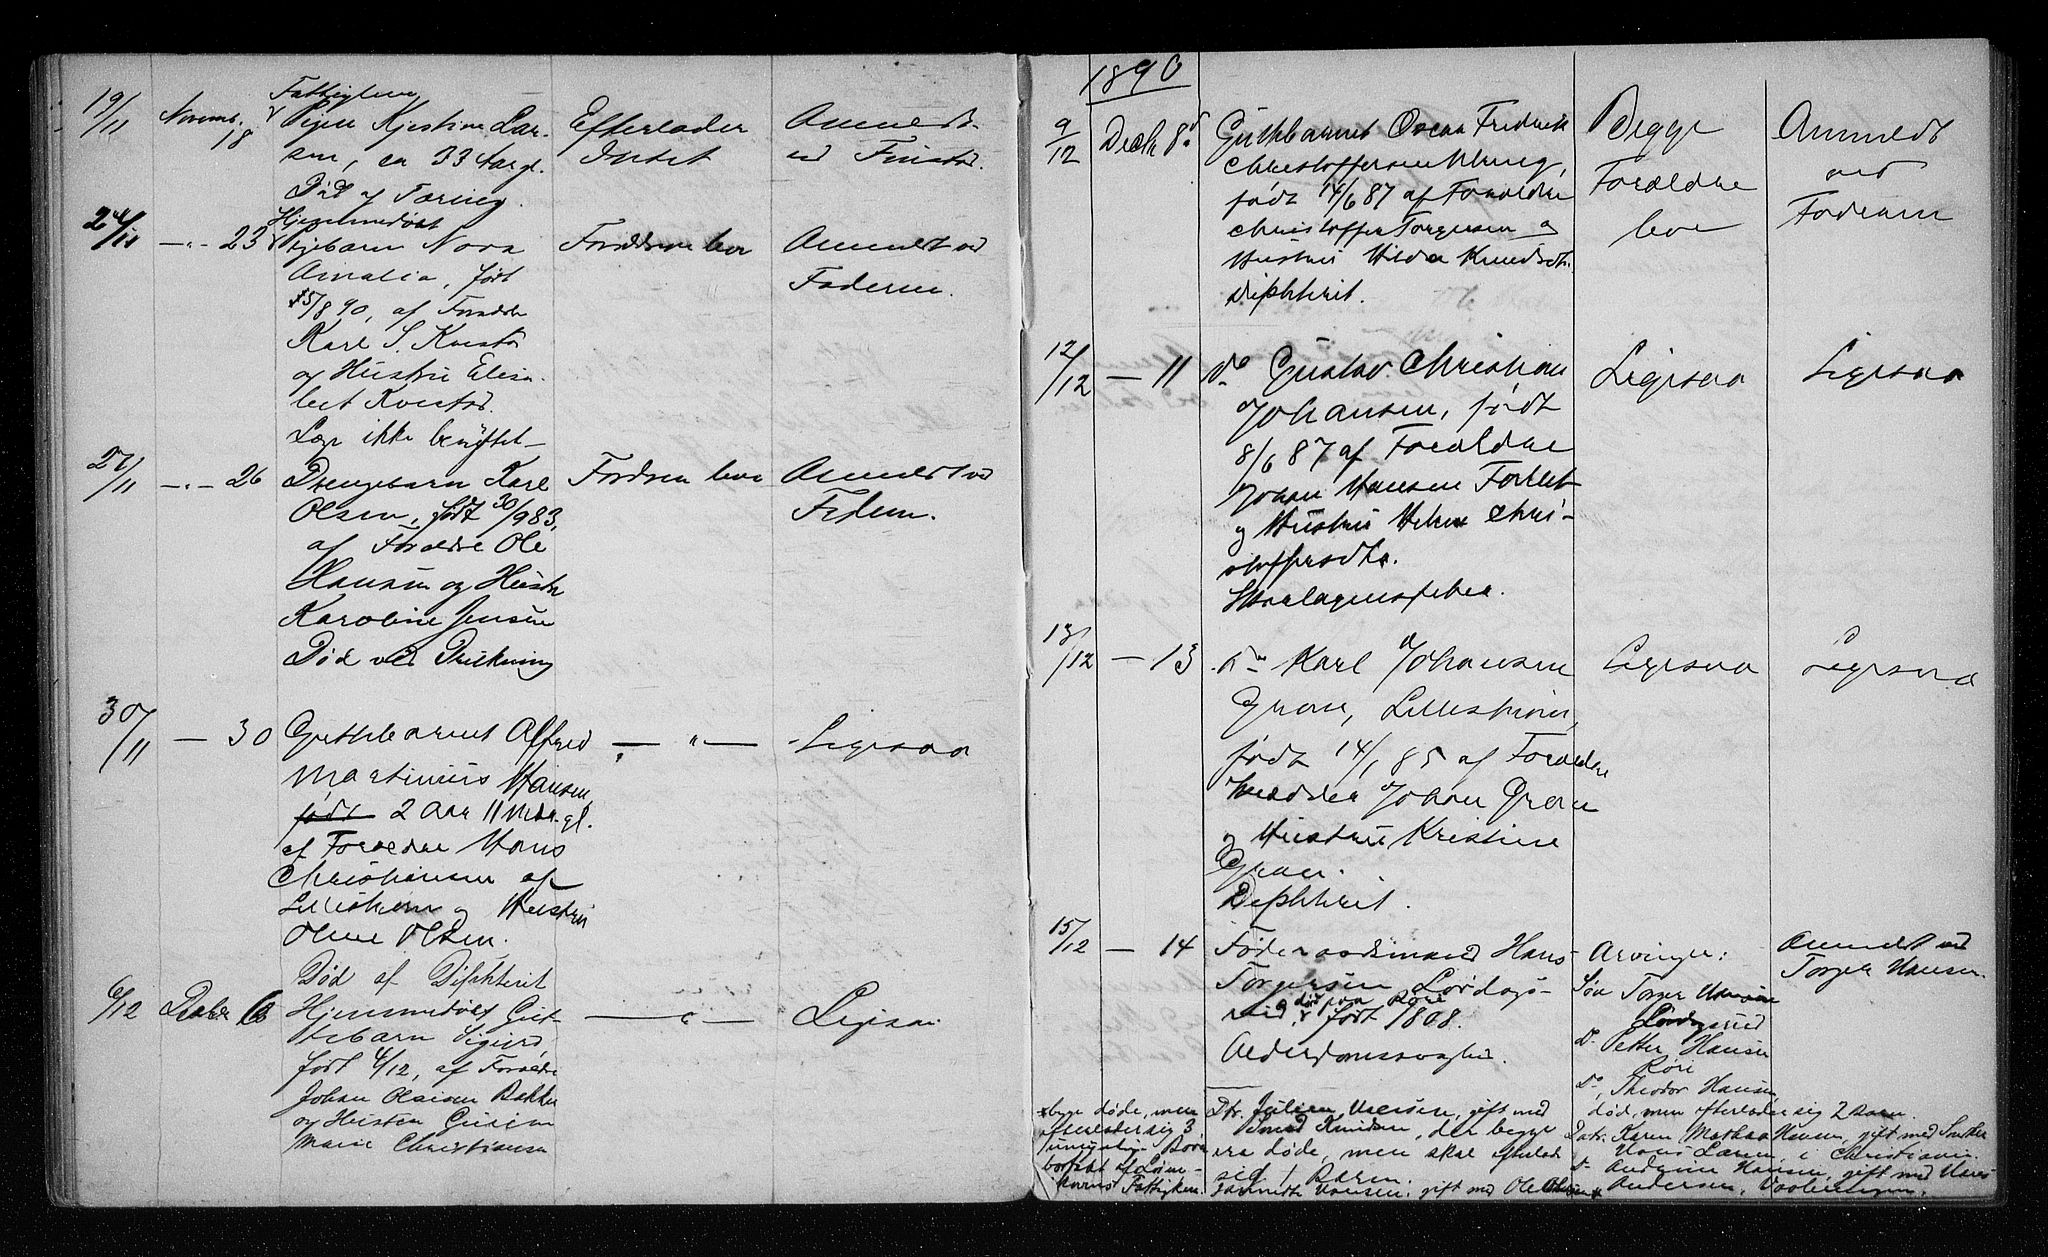 19/11
Novemb. 18
Fattiglem
Pigen Kjestine Lar-
sen, ca 33 Aar gl.
Død af Tæring.
Efterlader
Intet
Anmeldt
ved
24/11
— " — 23
Hjemmedøbt
Pigebarn Nora
Amalia, født
15/8 90, af Forældre
Karl S. Kvestad
og Hustru Elisa-
bet Kvestad.
Læge ikke benyttet —
Forældrene leve
Anmeldt ved
Faderen.
27/11
— " — 26
Drengebarn Karl
Olsen, født 30/9 83,
af Forældre Ole
Hansen og Hustru
Karoline Jensen
Død ved Drukning
Forældrene leve
Anmeldt ved
Faderen.
30/11
— 30
Guttebarnet Alfred
Martinius Hansen,
født 2 Aar 11 Mdr. gl.
af Forældre Hans
Christiansen af
Lillestrøm og Hustru
Oline Olsen.
Død af Difhterit
— " —
Ligesaa
6/12
Decbr 6
Hjemmedøbt Gut-
tebarn Sigurd,
født 4/12, af Forældre
Johan Olsisen Bakke
og Hustru
Marie Christiansen
— " —
Ligesaa
1890
9/12
Decbr 8d
Guttebarnet Oscar Fredrik
Christoffersen
født 14/6 87 af Forældre
Christoffer Torgersen og
Hustru Hilda Knudsdtr.
Diphterit.
Begge
Forældre
leve
Anmeldt
ved
Faderen
12/12
— 11
do Gustav Christian
Johansen, født
8/6 87 af Forældre
Johan Hansen
og Hustru Helene Chri-
stoffersdtr.
Skarlagensfeber.
Ligesaa
Ligesaa
13/12
— 13
do Karl Johansen
Gran, Lillestrøm,
født 14/1 85 af Forældre
Johan Gran
og Hustru Kristine
Gran.
Diphterit.
Ligesaa
Ligesaa
15/12
— 14
Føderaadsmand Hans
Torgersen Lørdags-
rud, død paa Røre
født 1808.
Alderdomssvaghed.
Arvinger:
Søn Torger Hansen
Lørdagsrud
do Petter Hansen
Røre
do, Theodor Hansen,
død, men efterlader sig 2 Barn.
Datr. Karen Mathea Hansen, gift med Snekker
Hans Larsen, i Christiania.
do Andrine Hansen, gift med Hans
Andersen, Vaalerengen.
Anmeldt ved
Torger Hansen.
Dtr. Juliane Hansen, gift med
Smed Knudsen, der begge
ere døde, men skal efterlade
sig 1 Barn.
Hansen, gift med Ole Olsen
begge døde, men
efterlader sig 3
umyndige Børn
bortsat af Lørens-
Fattigkom.